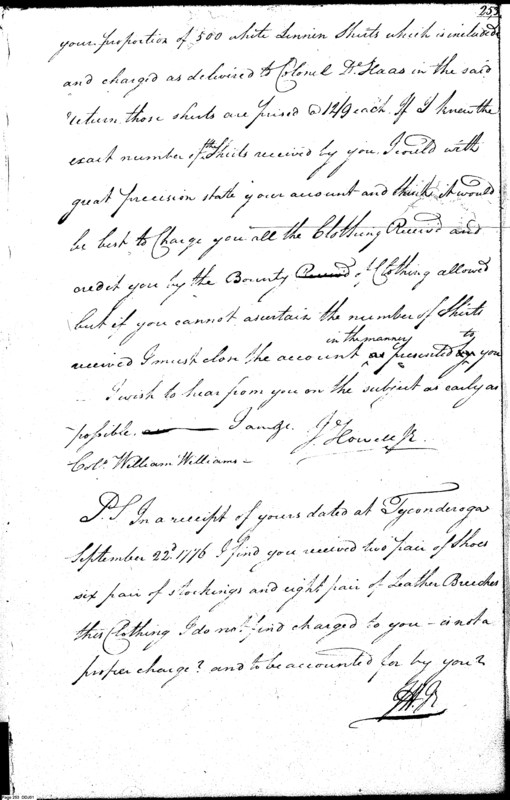 253
your proportion of 500 white Linnin Shirts which is included
and charged as delivered to Colonel De Haas in the said
return, those shirts are prised @ 12/9 each. If I knew the
exact number of the Shirts received by you, I could with
great precision state your account and think it would
be best to Charge you all the Clothing Receivd and
credit you by the Bounty Receivd of Clothing allowed
but if you cannot ascertain the number of Shirts
received I must close the account in the manner as presented by to you
I wish to hear from you on the subject as early as
possible. I am &c. Js Howell Jr.
Colo. William Williams —
P.S In a receipt of yours dated at Tyconderoga
September 22d. 1776 I find you received two pair of Shoes
six pair of stockings and eight pair of Leather Breeches
this Clothing I do not find charged to you — is not a
proper charge? and to be accounted for by you?
JH. Jr
Page 253